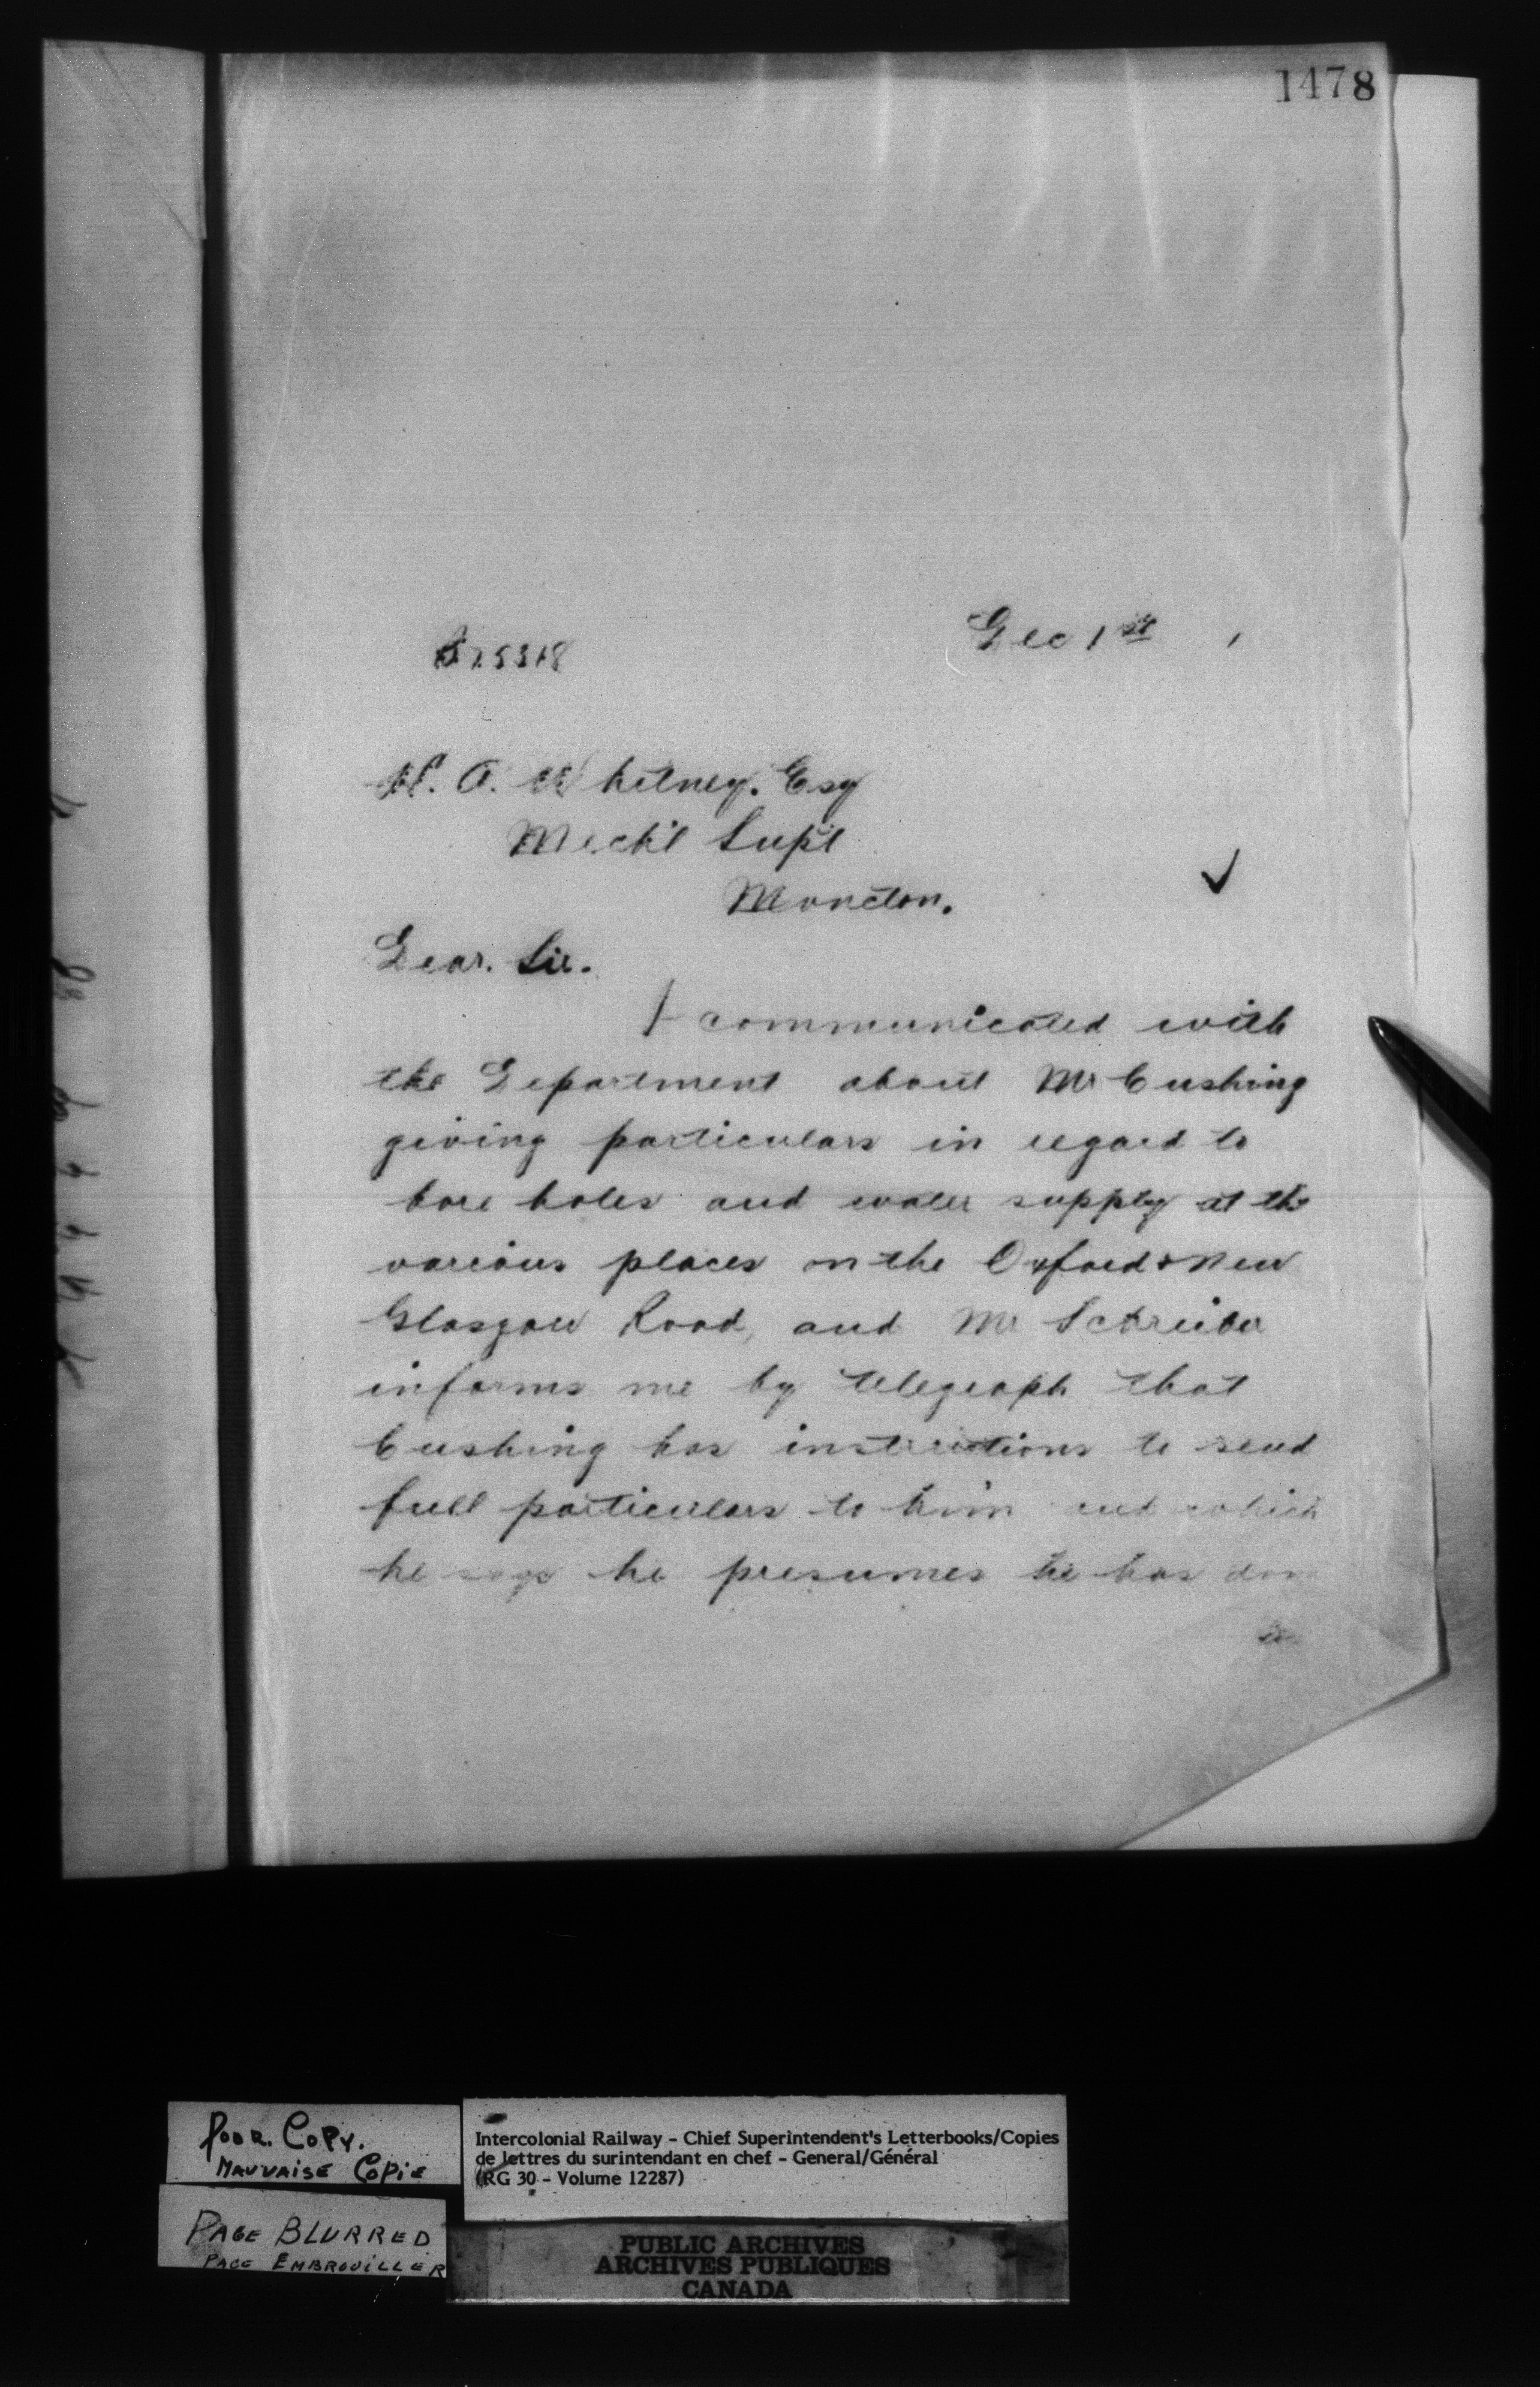 1478
Dec 1st
H. A. Whitney. Esq
Mech'l Supt
Moncton.
Dear. Sir.
I communicated with
the Department about Mr Cushing
giving particulars in regard to
bore holes and water supply at the
various places on the Oxford & New
Glasgow Road, and Mr Schreiber
informs me by telegraph that
Cushing has instructions to send
full particulars to him and which
he says he presumes he has don
Poor. Copy.
Mauvaise Copie
Page Blurred
Page Embrouiller
Intercolonial Railway - Chief Superintendent's Letterbooks/Copies
de lettres du surintendant en chef - General/Général
(RG 30 - Volume 12287)
PUBLIC ARCHIVES
ARCHIVES PUBLIQUES
CANADA